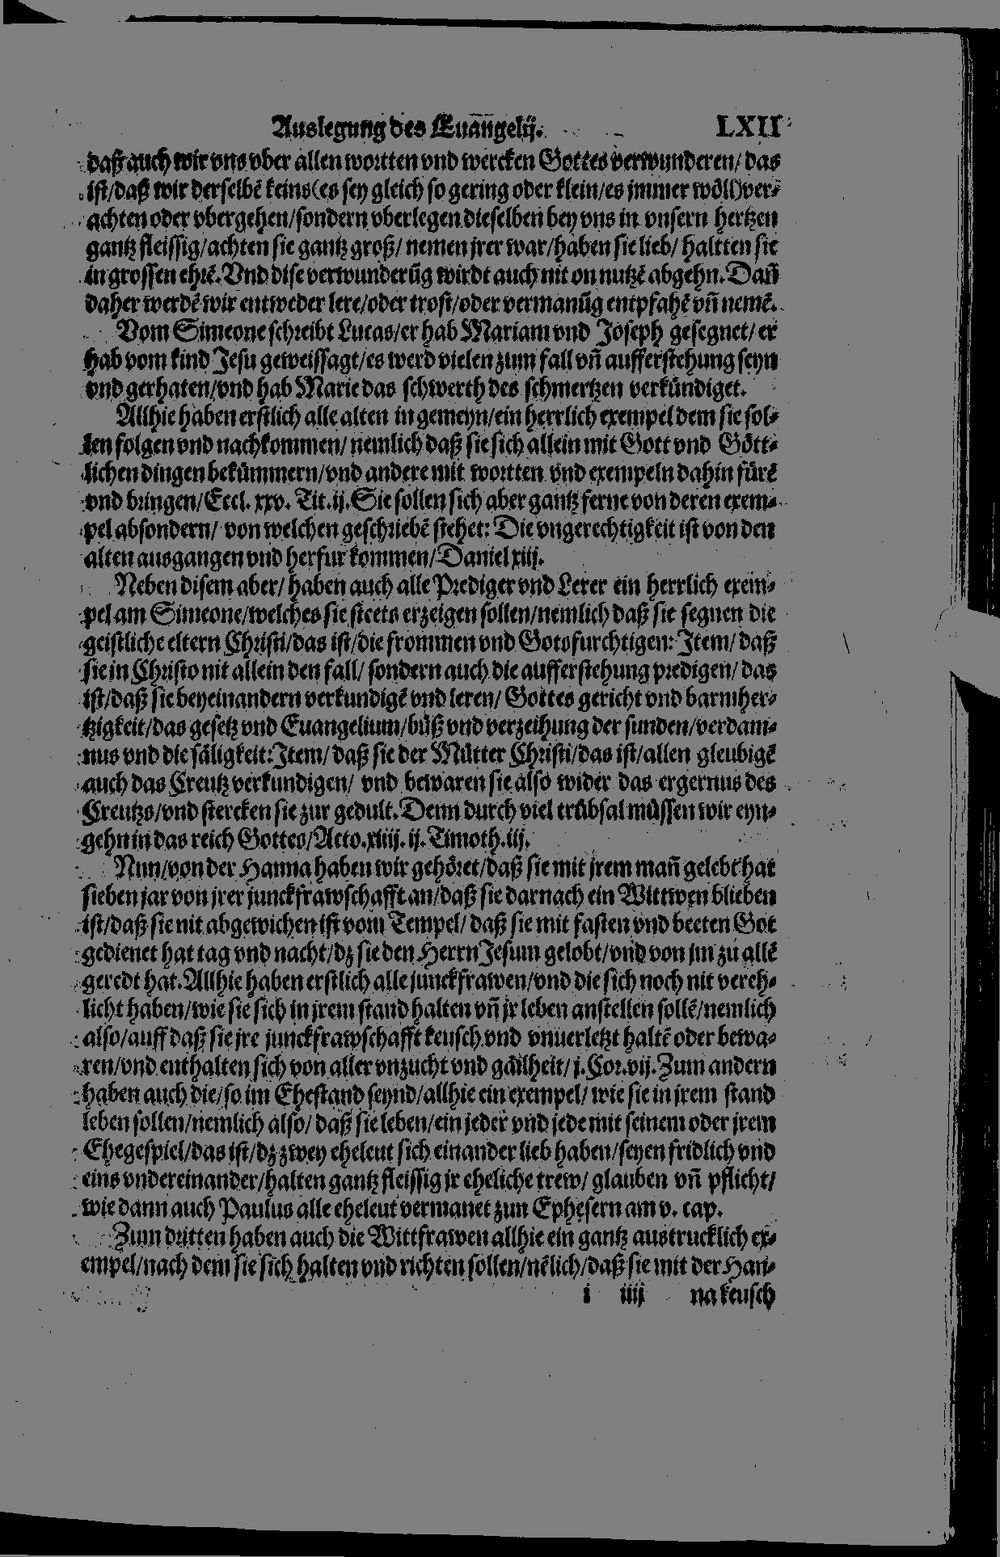 Auslegung des Euãñgelij. LXII
daß auch wir vns vber allen wortten vnd wercken Gottes verwunderen/ das
ist/daß wir derselbẽ keins(es sey gleich so gering oder klein/es jmmer wöll)ver-
achten oder vbergehen/sondern vberlegen dieselben bey vns in vnsern hertzen
gantz fleissig/achten sie gantz groß/ nemen jrer war/haben sie lieb/ haltten sie
in grossen ehrẽ. Vnd dise verwunderũg wirdt auch nit on nutzẽ abgehn. Dañ
daher werdẽ wir entweder lere/oder trost/oder vermanũg entpfahẽ vñ nemẽ.
Vom Simeone schreibt Lucas/er hab Mariam vnd Joseph gesegnet/er
hab vom kind Jesu geweissagt/es werd vielen zum fall vñ aufferstehung seyn
vnd gerhaten/vnd hab Marie das schwerth des schmertzen verkündiget.
Allhie haben erstlich alle alten in gemeyn/ein herrlich exempel dem sie sol-
len folgen vnd nachkommen/ nemlich daß sie sich allein mit Gott vnd Gött-
lichen dingen bekümmern/vnd andere mit wortten vnd exempeln dahin fürẽ
vnd bringen/Eccl. xxv. Tit. ij. Sie sollen sich aber gantz ferne von deren exem-
pel absondern/ von welchen geschriebẽ stehet: Die vngerechtigkeit ist von den
alten ausgangen vnd herfur kommen/Daniel xiij.
Neben disem aber/ haben auch alle Prediger vnd Lerer ein herrlich exem-
pel am Simeone/welches sie steets erzeigen sollen/nemlich daß sie segnen die
geistliche eltern Christi/das ist/die frommen vnd Gotsfurchtigen: Item/ daß
sie in Christo nit allein den fall/ sondern auch die aufferstehung predigen/ das
ist/daß sie beyeinandern verkundigẽ vnd leren/ Gottes gericht vnd barmher-
tzigkeit/das gesetz vnd Euangelium/büß vnd verzeihung der sunden/verdam-
nus vnd die säligkeit: Item/ daß sie der Mütter Christi/das ist/allen gleubigẽ
auch das Creutz verkundigen/ vnd bewaren sie also wider das ergernus des
Creutzs/vnd stercken sie zur gedult. Denn durch viel trübsal müssen wir eyn-
gehn in das reich Gottes/Acto. xiiij. ij. Timoth. iij.
Nun/von der Hanna haben wir gehöret/daß sie mit jrem mañ gelebt hat
sieben jar von jrer junckfrawschafft an/daß sie darnach ein Wittwen blieben
ist/daß sie nit abgewichen ist vom Tempel/ daß sie mit fasten vnd beeten Got
gedienet hat tag vnd nacht/dz sie den Herrn Jesum gelobt/vnd von jm zu allẽ
geredt hat. Allhie haben erstlich alle junckfrawen/vnd die sich noch nit vereh-
licht haben/wie sie sich in jrem stand halten vñ jr leben anstellen sollẽ/nemlich
also/auff daß sie jre junckfrawschafft keusch vnd vnuerletzt haltẽ oder bewa-
ren/vnd enthalten sich von aller vnzucht vnd gäilheit/j. Cor. vij. Zum andern
haben auch die/so im Ehestand seynd/allhie ein exempel/ wie sie in jrem stand
leben sollen/nemlich also/ daß sie leben/ein jeder vnd jede mit seinem oder jrem
Ehegespiel/das ist/dz zwey eheleut sich einander lieb haben/seyen fridlich vnd
eins vndereinander/halten gantz fleissig jr eheliche trew/ glauben vñ pflicht/
wie dann auch Paulus alle eheleut vermanet zun Ephesern am v. cap.
Zum dritten haben auch die Wittfrawen allhie ein gantz austrucklich ex-
empel/nach dem sie sich halten vnd richten sollen/nẽlich/daß sie mit der Han-
i iiij na keusch